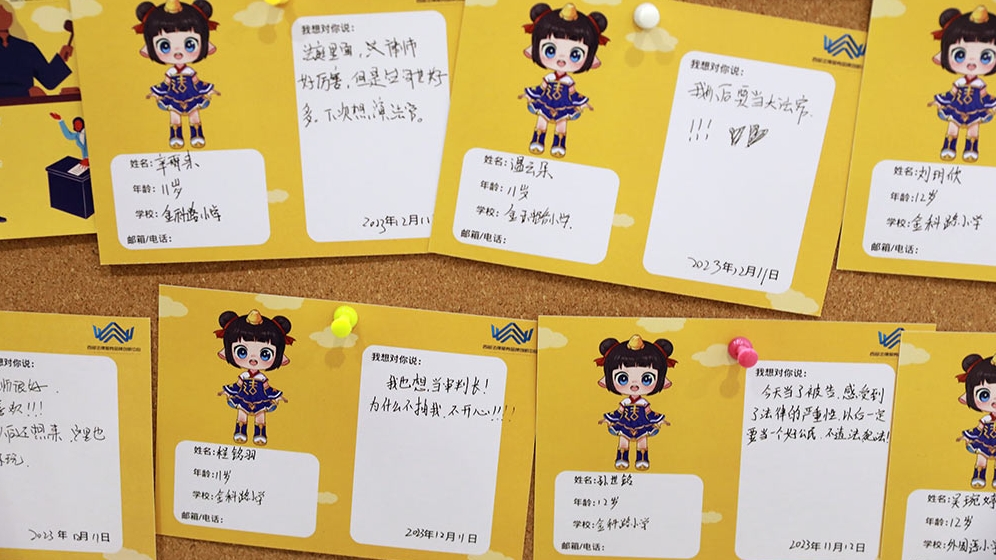 我想对你说:
法庭里面,
好厉害,但是
多。下次想演法官。
姓名:
年龄:11岁
学校:金科路小学
邮箱/电话:
2023年12月11
我想对你说:
我以后要当大法官.
!!!
姓名:温云朵
年龄:11岁
学校:金科路小学.
邮箱/电话:
2023年12月11日
姓名:刘玥欣
年龄:12岁
学校:金科路小学
邮箱/电话:
想对你说:
师很好
喜欢!!!
以后还想来 这里也
玩.
2023年12月11日
我想对你说:
我也想当审判长!
为什么不抽我,不开心!!!!
姓名:程铭羽
年龄:11岁
学校:金科路小学
邮箱/电话:
2023年12月11日
我想对你说:
今天当了被告,感受到
了法律的严重性,以后一定
要当一个好公民,不违法犯法!
姓名:
年龄:12岁
学校:金科路小学
邮箱/电话:
2023年11月12日
姓名:吴琬婷
年龄:12岁
学校:外国语小